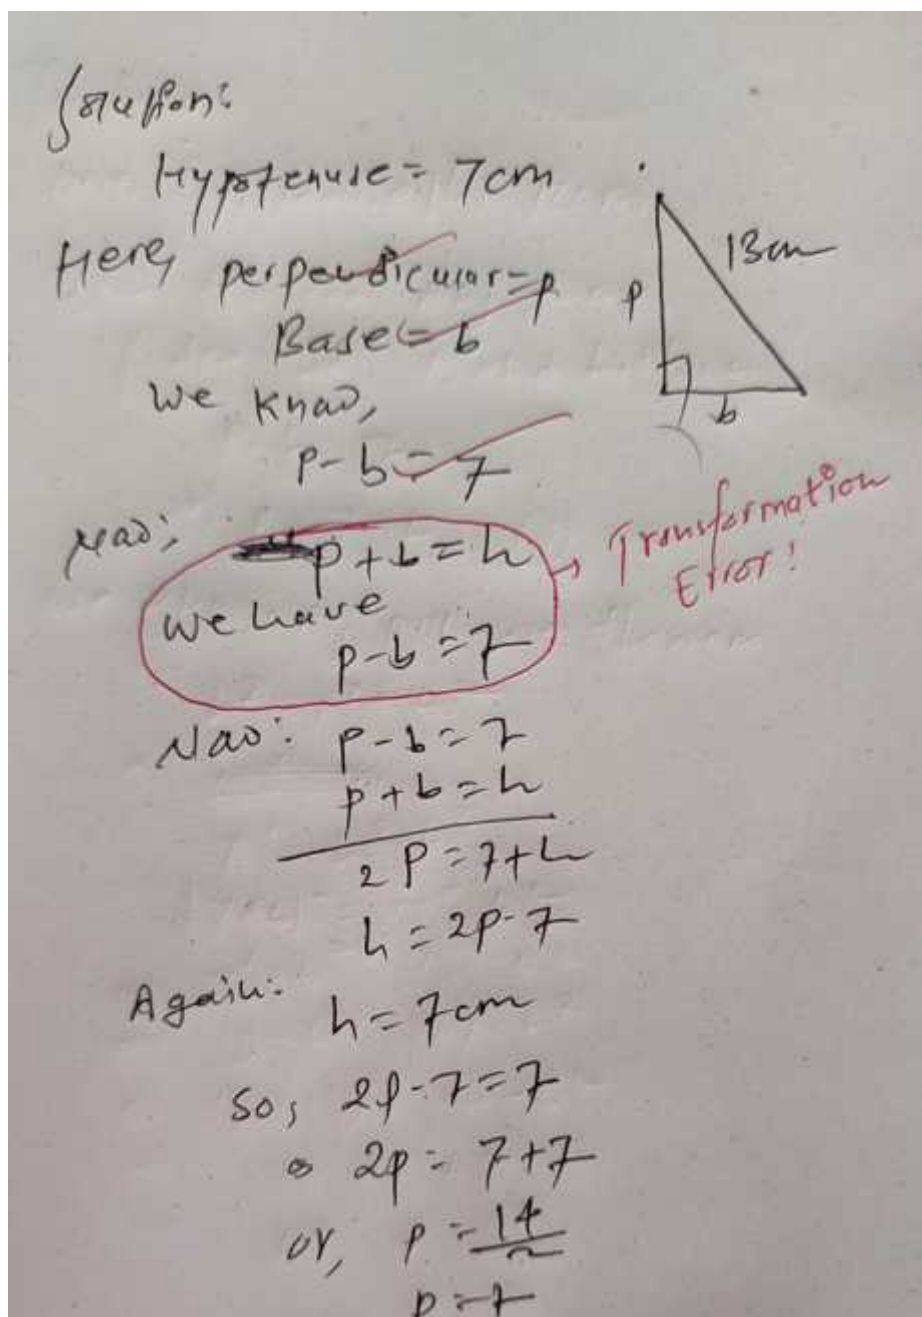 Solution:
Hypotenuse = 7cm
Here, perpendicular = p
Base = b
13cm
p
b
We know,
p - b = 7
Now;
p + b = h
We have
p - b = 7
Transformation
Error!
Now: p - b = 7
p + b = h
2P = 7 + h
h = 2p - 7
Again:
h = 7cm
So, 2p - 7 = 7
2p = 7 + 7
or, p = 14/2
p = 7